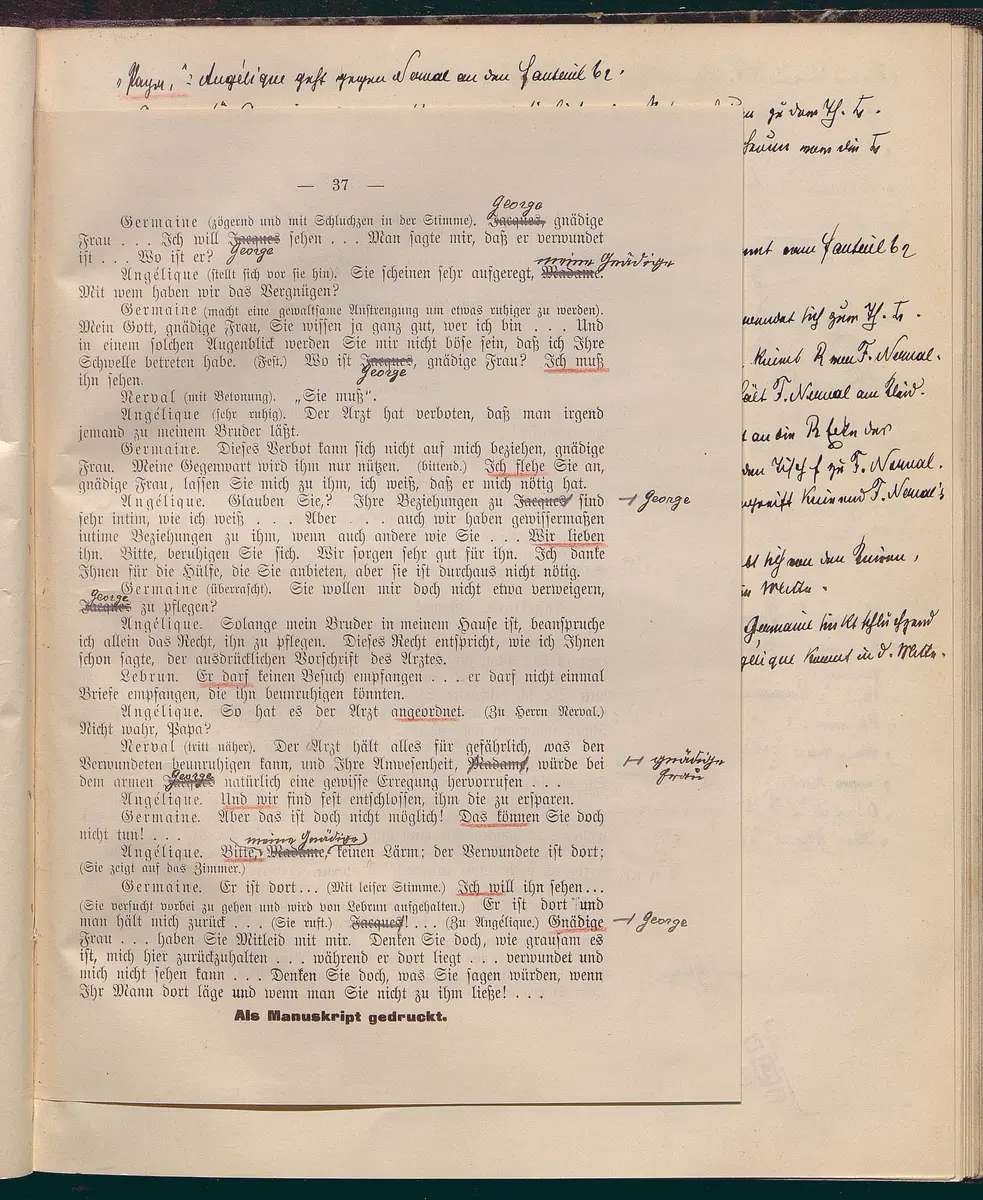 „Papa,": Angélique geht gegen Nerval an den Fauteuil b2.
zu dem Th. Tr.
— 37 —
George
Germaine (zögernd und mit Schluchzen in der Stimme). Jacques, gnädige
Frau . . . Ich will Jacques sehen . . . Man sagte mir, daß er verwundet
ist . . . Wo ist er? George
meine Gnädige
Angélique (stellt sich vor sie hin). Sie scheinen sehr aufgeregt, Madame.
Mit wem haben wir das Vergnügen?
Germaine (macht eine gewaltsame Anstrengung um etwas ruhiger zu werden).
Mein Gott, gnädige Frau, Sie wissen ja ganz gut, wer ich bin . . . Und
in einem solchen Augenblick werden Sie mir nicht böse sein, daß ich Ihre
Schwelle betreten habe. (Fest.) Wo ist Jacques, gnädige Frau? Ich muß
George
ihn sehen.
Nerval (mit Betonung). „Sie muß".
Angélique (sehr ruhig). Der Arzt hat verboten, daß man irgend
jemand zu meinem Bruder läßt.
Germaine. Dieses Verbot kann sich nicht auf mich beziehen, gnädige
Frau. Meine Gegenwart wird ihm nur nützen. (bittend.) Ich flehe Sie an,
gnädige Frau, lassen Sie mich zu ihm, ich weiß, daß er mich nötig hat.
Angélique. Glauben Sie,? Ihre Beziehungen zu Jacques sind
George
sehr intim, wie ich weiß . . . Aber . . . auch wir haben gewissermaßen
intime Beziehungen zu ihm, wenn auch andere wie Sie . . . Wir lieben
ihn. Bitte, beruhigen Sie sich. Wir sorgen sehr gut für ihn. Ich danke
Ihnen für die Hülfe, die Sie anbieten, aber sie ist durchaus nicht nötig.
Germaine (überrascht). Sie wollen mir doch nicht etwa verweigern,
George
Jacques zu pflegen?
Angélique. Solange mein Bruder in meinem Hause ist, beanspruche
ich allein das Recht, ihn zu pflegen. Dieses Recht entspricht, wie ich Ihnen
schon sagte, der ausdrücklichen Vorschrift des Arztes.
Lebrun. Er darf keinen Besuch empfangen . . . er darf nicht einmal
Briefe empfangen, die ihn beunruhigen könnten.
Angélique. So hat es der Arzt angeordnet. (Zu Herrn Nerval.)
Nicht wahr, Papa?
Nerval (tritt näher). Der Arzt hält alles für gefährlich, was den
Verwundeten beunruhigen kann, und Ihre Anwesenheit, Madame, würde bei
gnädige
Frau
George
dem armen Jacques natürlich eine gewisse Erregung hervorrufen . . .
Angélique. Und wir sind fest entschlossen, ihm die zu ersparen.
Germaine. Aber das ist doch nicht möglich! Das können Sie doch
nicht tun! . . .
meine Gnädige
Angélique. Bitte, Madame, keinen Lärm; der Verwundete ist dort;
(Sie zeigt auf das Zimmer.)
Germaine. Er ist dort... (Mit leiser Stimme.) Ich will ihn sehen...
(Sie versucht vorbei zu gehen und wird von Lebrun aufgehalten.) Er ist dort und
man hält mich zurück . . . (Sie ruft.) Jacques! . . . (Zu Angélique.) Gnädige
George
Frau . . . haben Sie Mitleid mit mir. Denken Sie doch, wie grausam es
ist, mich hier zurückzuhalten . . . während er dort liegt . . . verwundet und
mich nicht sehen kann . . . Denken Sie doch, was Sie sagen würden, wenn
Ihr Mann dort läge und wenn man Sie nicht zu ihm ließe! . . .
Als Manuskript gedruckt.
vom Fauteuil b2
wendet sich zum Th. Tr.
kniet R von F. Nerval.
F. Nerval am Kleid.
an die R Ecke des
den Tisch f zu F. Nerval.
ergreift knieend F. Nerval's
sich von den Knieen,
Germaine sinkt schluchzend
kommt in d. Mitte.